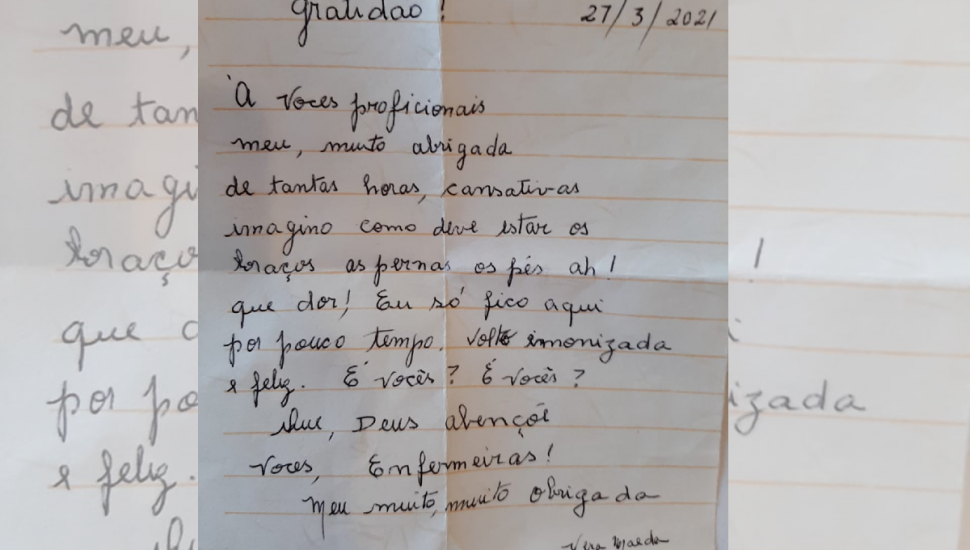 gratidão!
27/3/2021
À voces proficionais
meu, muito abrigada
de tantas horas, cansativas
imagino como deve estar os
braços as pernas os pés ah!
que dor! Eu só fico aqui
por pouco tempo. Volto imonizada
e feliz. É vocês? É vocês?
Que, Deus abençoê
voces, Enfermeiras!
Meu muito, muito obrigada
Vera